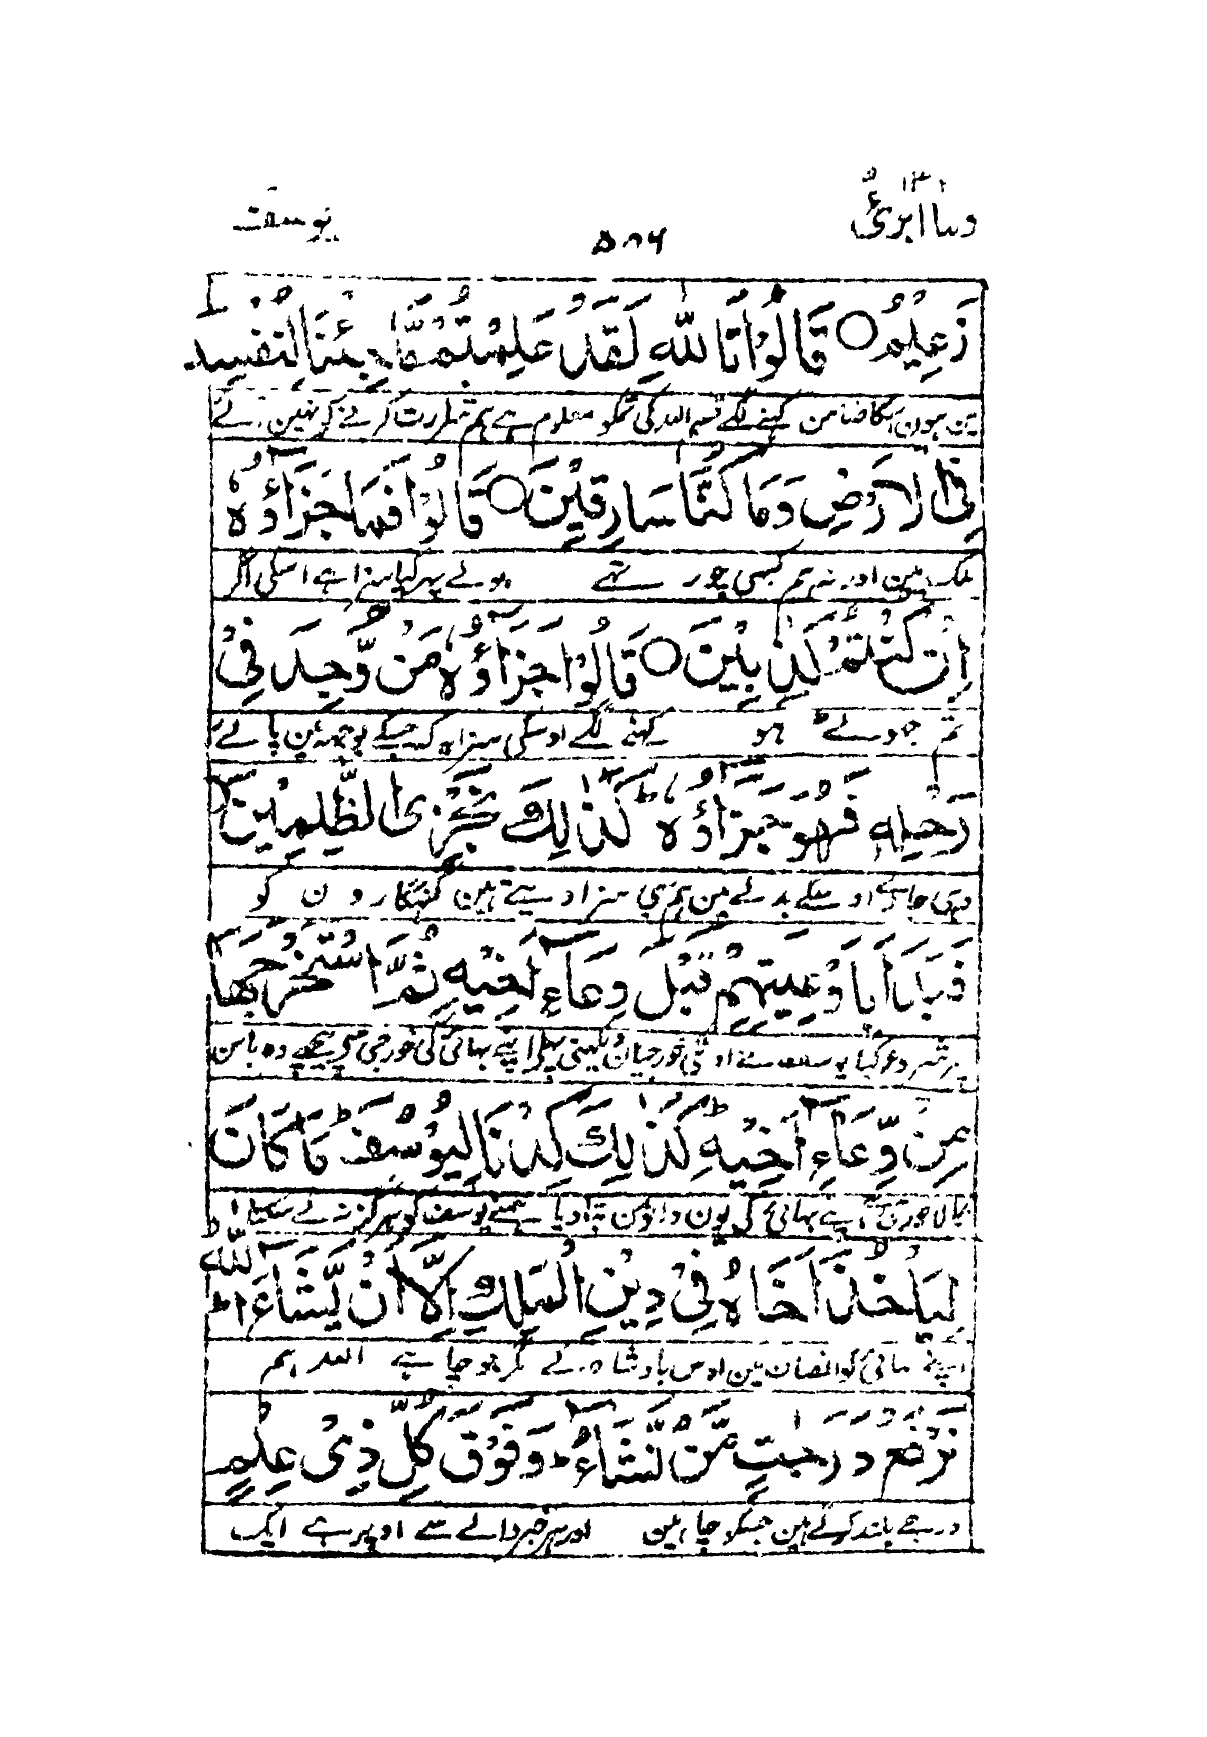 وما ابرئ ۱۳
۵۸۶
یوسف
زَعِيْمٌ ○ قَالُوْا تَاللّٰهِ لَقَدْ عَلِمْتُمْ مَّا جِئْنَا لِنُفْسِدَ
ہین ہون اسکا ضامن کہنے لگے قسم اللہ کی تمکو معلوم ہے ہم شرارت کرنے کو نہین آئے
فِى الْاَرْضِ وَمَا كُنَّا سَارِقِيْنَ ○ قَالُوْا فَمَا جَزَآؤُهٗ
ملک مین اور نہ ہم کبھی چور تھے بولے پہر کیا سزا ہے اسکی اگر
اِنْ كُنْتُمْ كٰذِبِيْنَ ○ قَالُوْا جَزَآؤُهٗ مَنْ وُّجِدَ فِىْ
تم جھوٹے ہو کہنے لگے اوسکی سزا یہ کہ جسکے بوجھ مین پائے
رَحْلِهٖ فَهُوَ جَزَآؤُهٗ ؕ كَذٰلِكَ نَجْزِى الظّٰلِمِيْنَ
وہی جاوے اوسکے بدلے مین ہم یہی سزا دیتے ہین گنہگارون کو
فَبَدَاَ بِاَوْعِيَتِهِمْ قَبْلَ وِعَآءِ اَخِيْهِ ثُمَّ اسْتَخْرَجَهَا
پہر شروع کیا یوسف نے اونکی خورجیان دیکہنی پہلے اپنے بہائی کی خورجی سے پیچھے وہ باسن
مِنْ وِّعَآءِ اَخِيْهِ ؕ كَذٰلِكَ كِدْنَا لِيُوْسُفَ ؕ مَا كَانَ
نکالا خورجی سے اپنے بہائی کی یون داؤ بتا دیا ہمنے یوسف کو ہرگز نہ لے سکتا
لِيَاْخُذَ اَخَاهُ فِىْ دِيْنِ الْمَلِكِ اِلَّآ اَنْ يَّشَآءَ اللّٰهُ ؕ
اپنے بہائی کو انصاف مین اوس بادشاہ کے مگر جو چاہے اللہ ہم
نَرْفَعُ دَرَجٰتٍ مَّنْ نَّشَآءُ ؕ وَفَوْقَ كُلِّ ذِىْ عِلْمٍ
درجے بلند کرتے ہین جسکو چاہین اور ہر خبر والے سے اوپر ہے ایک